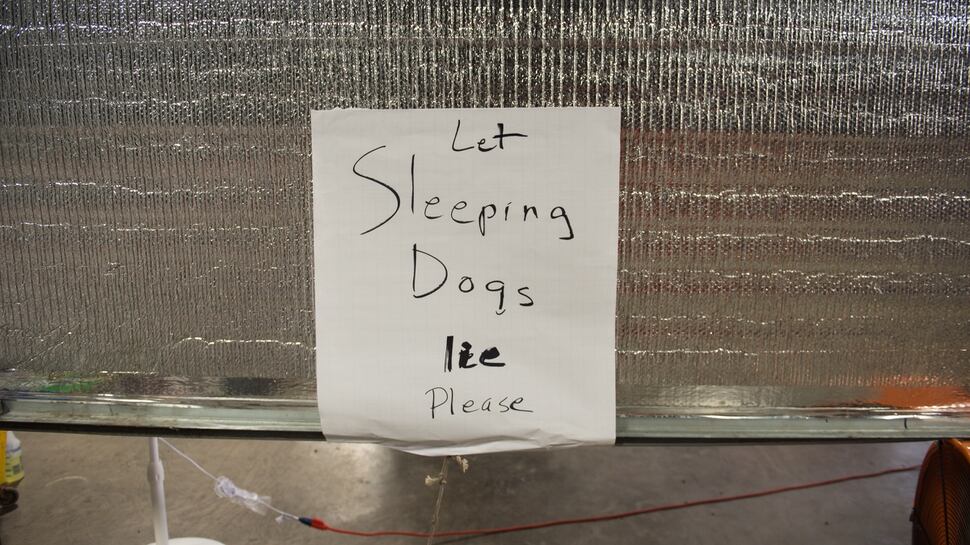 Let
Sleeping
Dogs
lie
Please